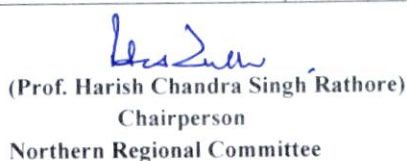 (Prof. Harish Chandra Singh Rathore)
Chairperson
Northern Regional Committee